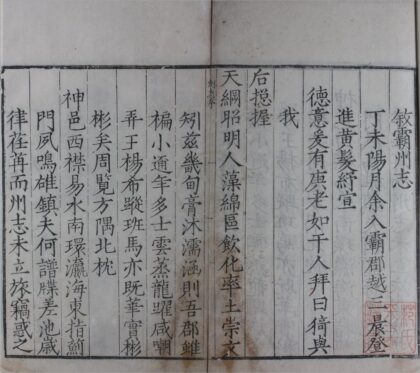 敘霸州志
丁未陽月余入霸郡越三晨登
進黃髮紓宣
德意爰有庚老如干人拜曰猗與
我
后揔握
天綱昭明人藻綿區飲化率土崇文
矧茲畿甸膏沐濡涵則吾郡雖
褊小邇年多士雲蒸龍躍咸嘲
弄王楊希蹤班馬亦既華實彬
彬矣周覽方隅北枕
神邑西襟易水南環瀛海東掎薊
門夙鳴雄鎮夫何譜牒差池歲
律荏苒而州志未立旅竊惑之